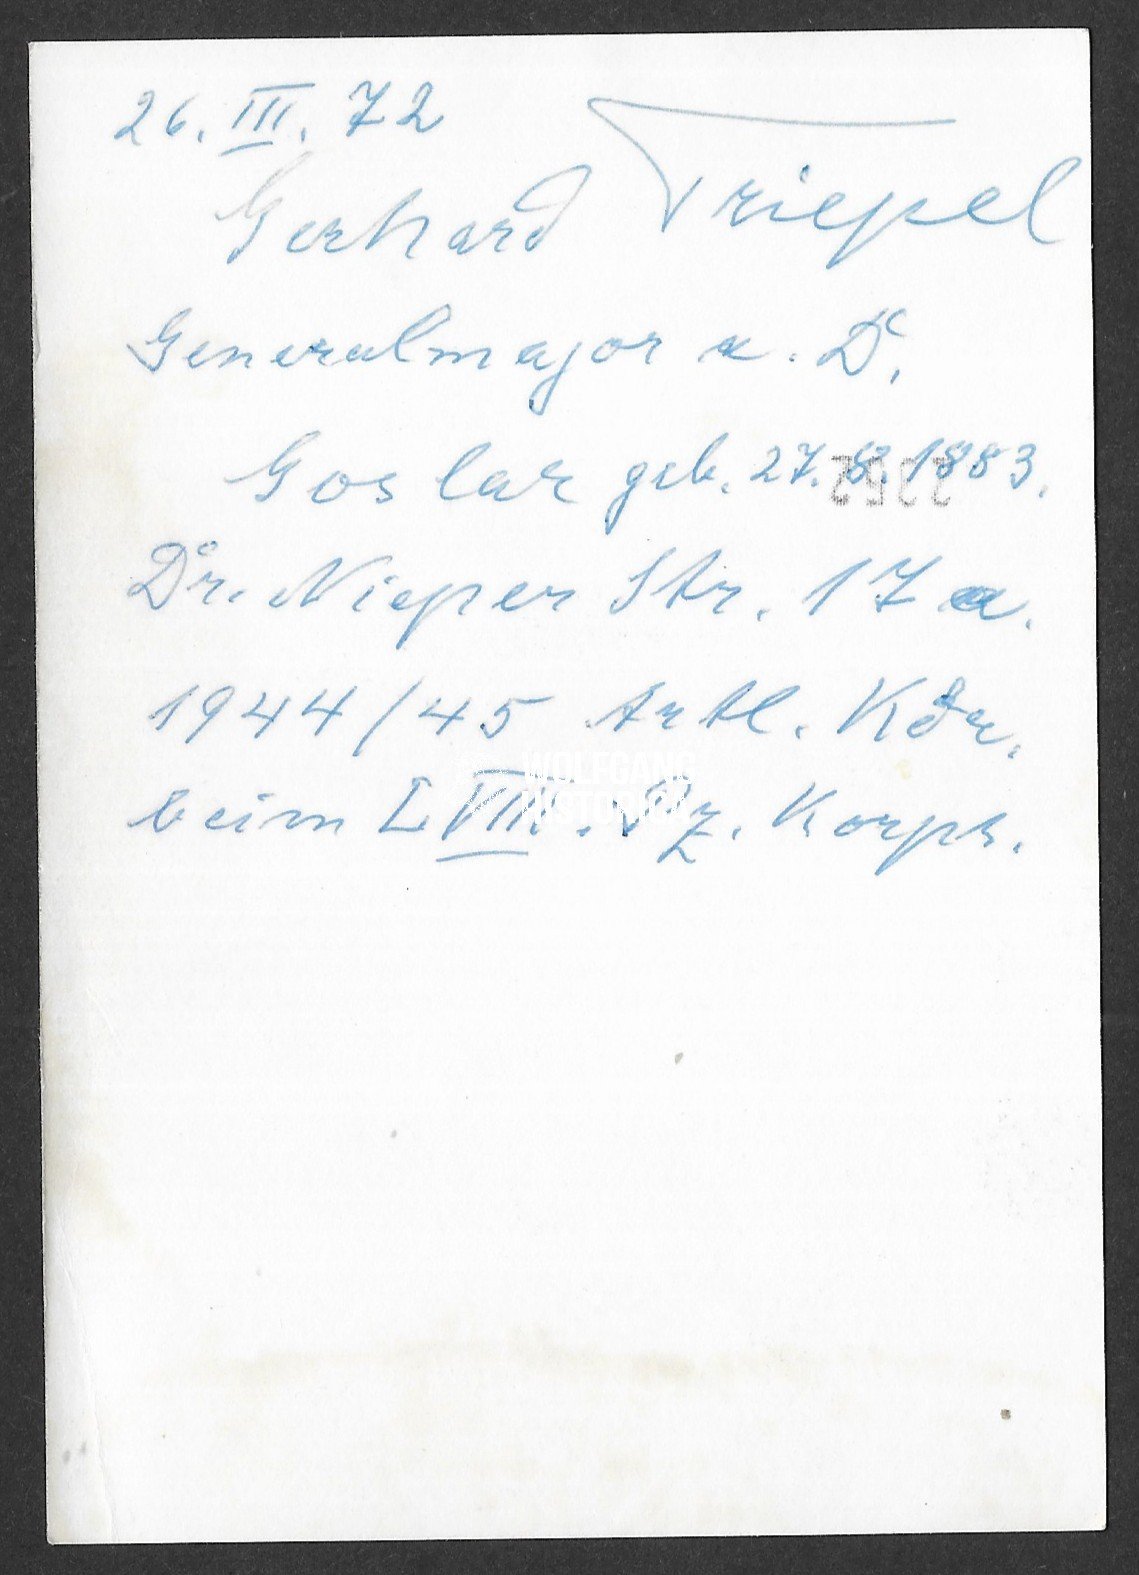 26. III. 72
Gerhard Triepel
Generalmajor a. D.
Goslar geb. 27. 8. 1883.
Dr. Nieper Str. 17 a.
1944/45 Artl. Kdr.
beim LVIII. Pz. Korps.
WOLFGANG
HISTORICA